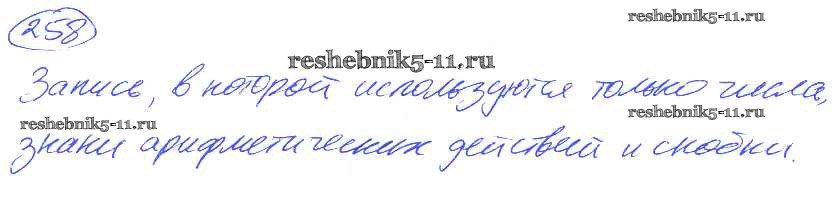 258
reshebnik5-11.ru
reshebnik5-11.ru
Запись, в которой используются только числа,
reshebnik5-11.ru
reshebnik5-11.ru
знаки арифметических действий и скобки.